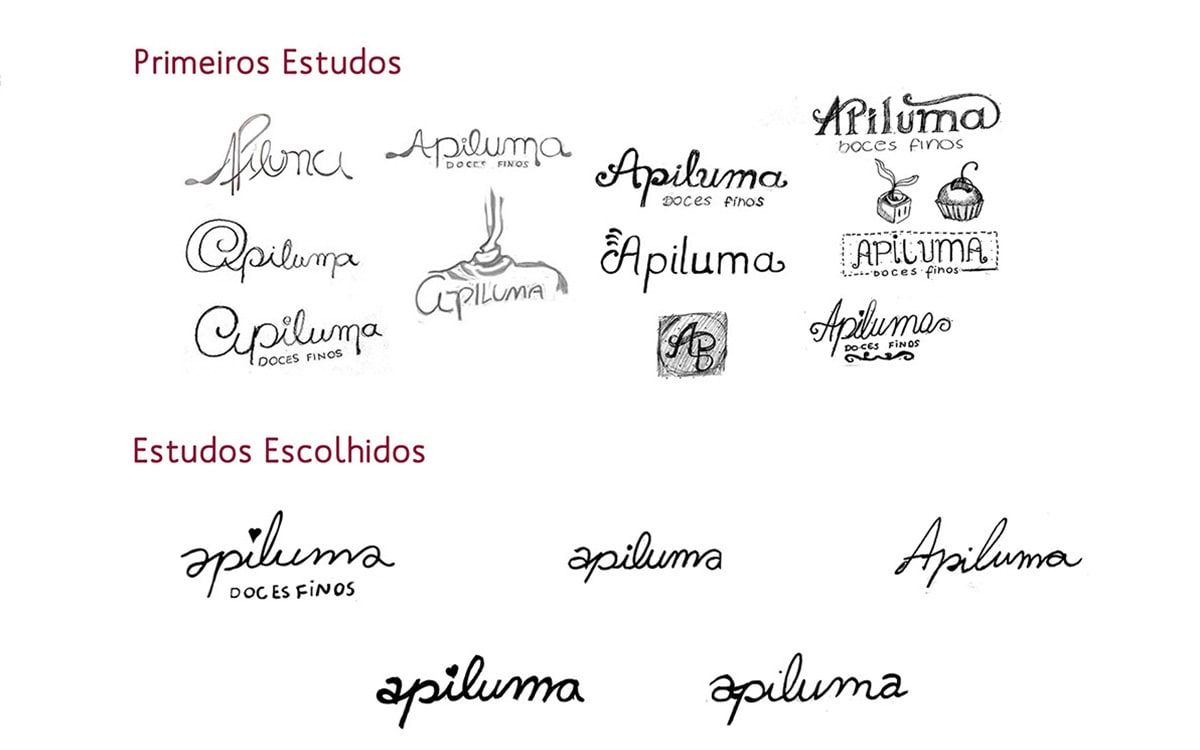 Primeiros Estudos
Apiluma
Apiluma
DOCES FINOS
Apiluma
DOCES FINOS
APiluma
DOCES FINOS
Apiluma
DOCES FINOS
apiluma
apiluma
DOCES FINOS
apiluma
Apiluma
AP
APiLUMA
DOCES finos
Apiluma
DOCES FINOS
Estudos Escolhidos
apiluma
DOCES FiNOS
apiluma
Apiluma
apiluma
apiluma